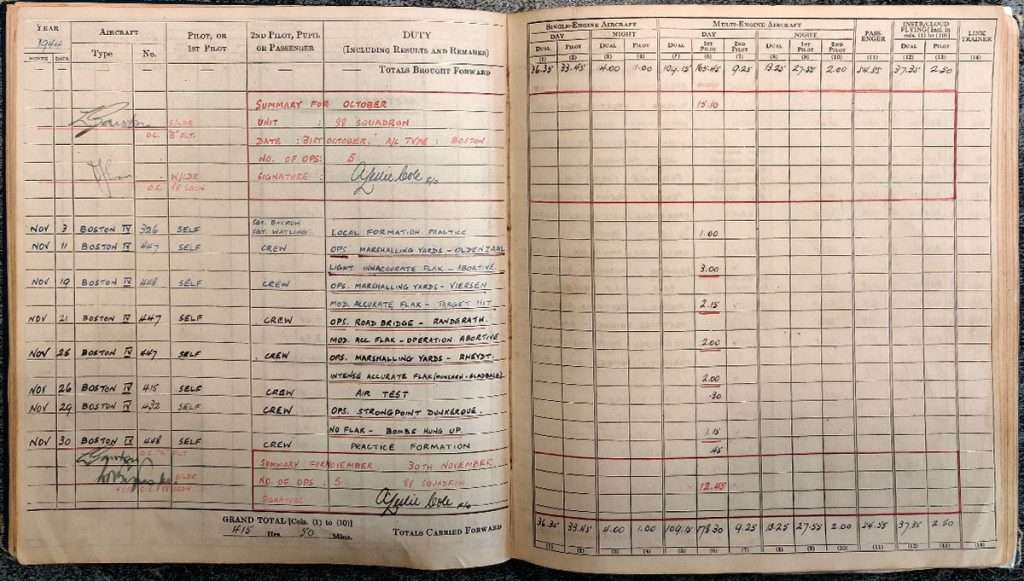 YEAR AIRCRAFT PILOT, OR 2ND PILOT, PUPIL DUTY
1944 1ST PILOT OR PASSENGER (INCLUDING RESULTS AND REMARKS)
MONTH DATE Type No.
TOTALS BROUGHT FORWARD
SUMMARY FOR OCTOBER
UNIT : 88 SQUADRON
DATE : 31ST OCTOBER. A/C TYPE : BOSTON
NO. OF OPS: 5
SIGNATURE : Leslie Cole F/O
S/LDR
O.C. "B" FLT.
W/CDR
O.C. 88 SQDN
SGT. WATLING
NOV 3 BOSTON IV 326 SELF LOCAL FORMATION PRACTICE
NOV 11 BOSTON IV 447 SELF CREW OPS. MARSHALLING YARDS - OLDENZAAL
LIGHT INNACCURATE FLAK - ABORTIVE
NOV 19 BOSTON IV 448 SELF CREW OPS. MARSHALLING YARDS - VIERSEN
MOD. ACCURATE FLAK - TARGET HIT
NOV 21 BOSTON IV 447 SELF CREW OPS. ROAD BRIDGE - RANDERATH.
MOD. ACC FLAK - OPERATION ABORTIVE
NOV 25 BOSTON IV 447 SELF CREW OPS. MARSHALLING YARDS - RHEYDT.
INTENSE ACCURATE FLAK (MUNCHEN - GLADBACH)
NOV 26 BOSTON IV 415 SELF CREW AIR TEST
NOV 29 BOSTON IV 432 SELF CREW OPS. STRONGPOINT DUNKERQUE.
NO FLAK - BOMBS HUNG UP.
NOV 30 BOSTON IV 448 SELF CREW PRACTICE FORMATION
SUMMARY FOR NOVEMBER 30TH NOVEMBER
NO. OF OPS : 5 88 SQUADRON
SIGNATURE Leslie Cole F/O
GRAND TOTAL [Cols. (1) to (10)]
415 Hrs. 50 Mins.
TOTALS CARRIED FORWARD
SINGLE-ENGINE AIRCRAFT MULTI-ENGINE AIRCRAFT PASSENGER INSTR/CLOUD FLYING [Incl. in cols. (1) to (10)] LINK TRAINER
DAY NIGHT DAY NIGHT
DUAL PILOT DUAL PILOT DUAL 1ST PILOT 2ND PILOT DUAL 1ST PILOT 2ND PILOT DUAL PILOT
(1) (2) (3) (4) (5) (6) (7) (8) (9) (10) (11) (12) (13) (14)
36.35 33.45 4.00 1.00 109.15 165.45 9.25 13.25 27.55 2.00 54.55 37.35 2.50
15.10
1.00
3.00
2.15
2.00
2.00
.30
1.15
.45
12.45
36.35 33.45 4.00 1.00 109.15 178.30 9.25 13.25 27.55 2.00 54.55 37.35 2.50
(1) (2) (3) (4) (5) (6) (7) (8) (9) (10) (11) (12) (13) (14)